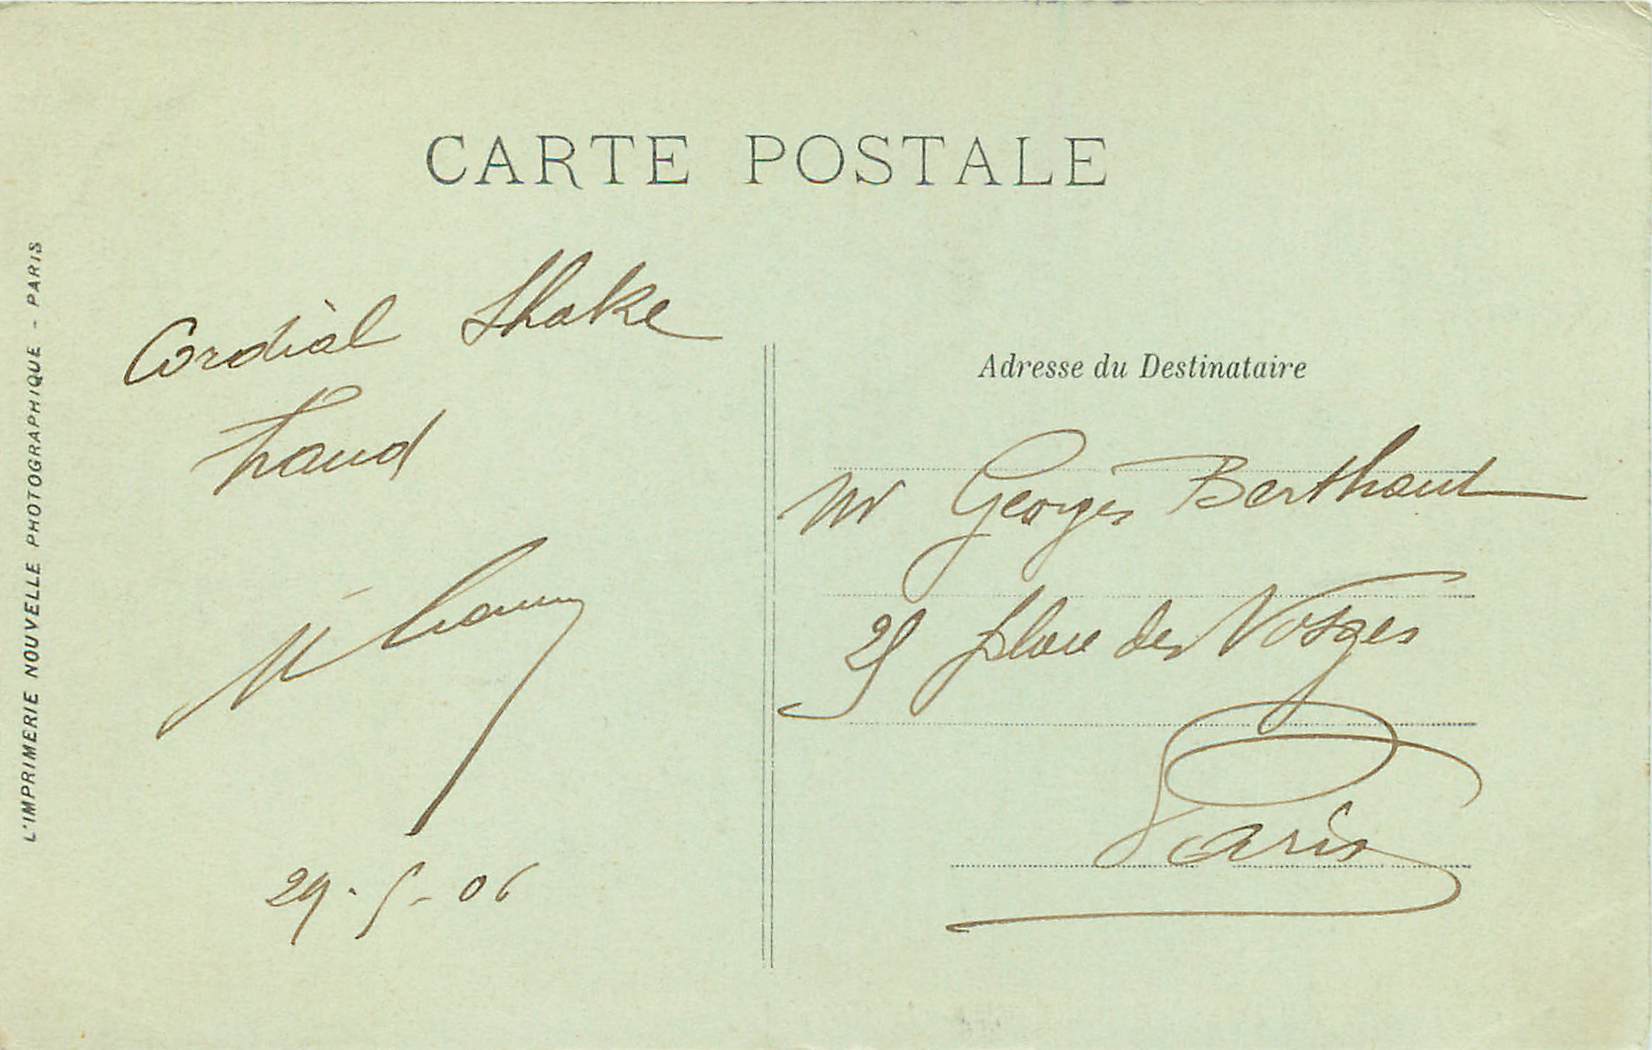 CARTE POSTALE
L'IMPRIMERIE NOUVELLE PHOTOGRAPHIQUE - PARIS
Cordial Shake
hand
29-5-06
Adresse du Destinataire
Mr Georges Berthaut
25 place des Vosges
Paris